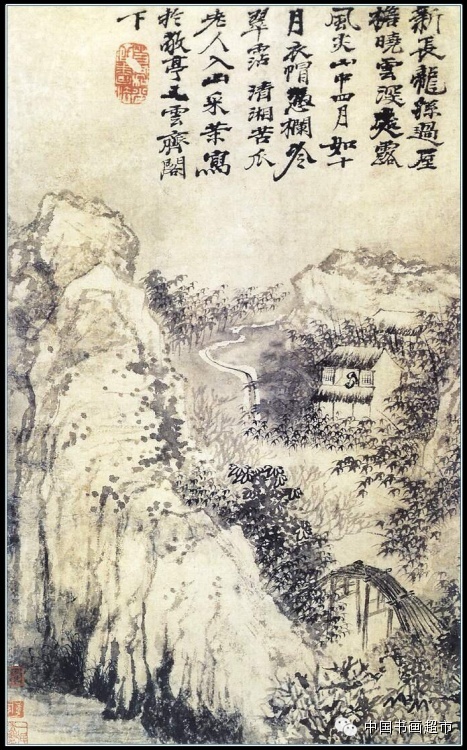 新長龍孫過屋
檐曉雲深處露
風尖山中四月如十
月衣帽憑欄冷
翠霑 清湘苦瓜
老人入山采茶寫
於敬亭之雲齊閣
下
中国书画超市